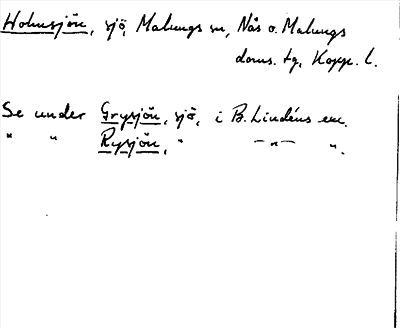 Holmsjön, sjö, Malungs sn, Nås o. Malungs
doms. tg, Kopp. l.
Se under Grysjön, sjö, i B. Lindéns exc.
" " Rysjön, " —"— ".